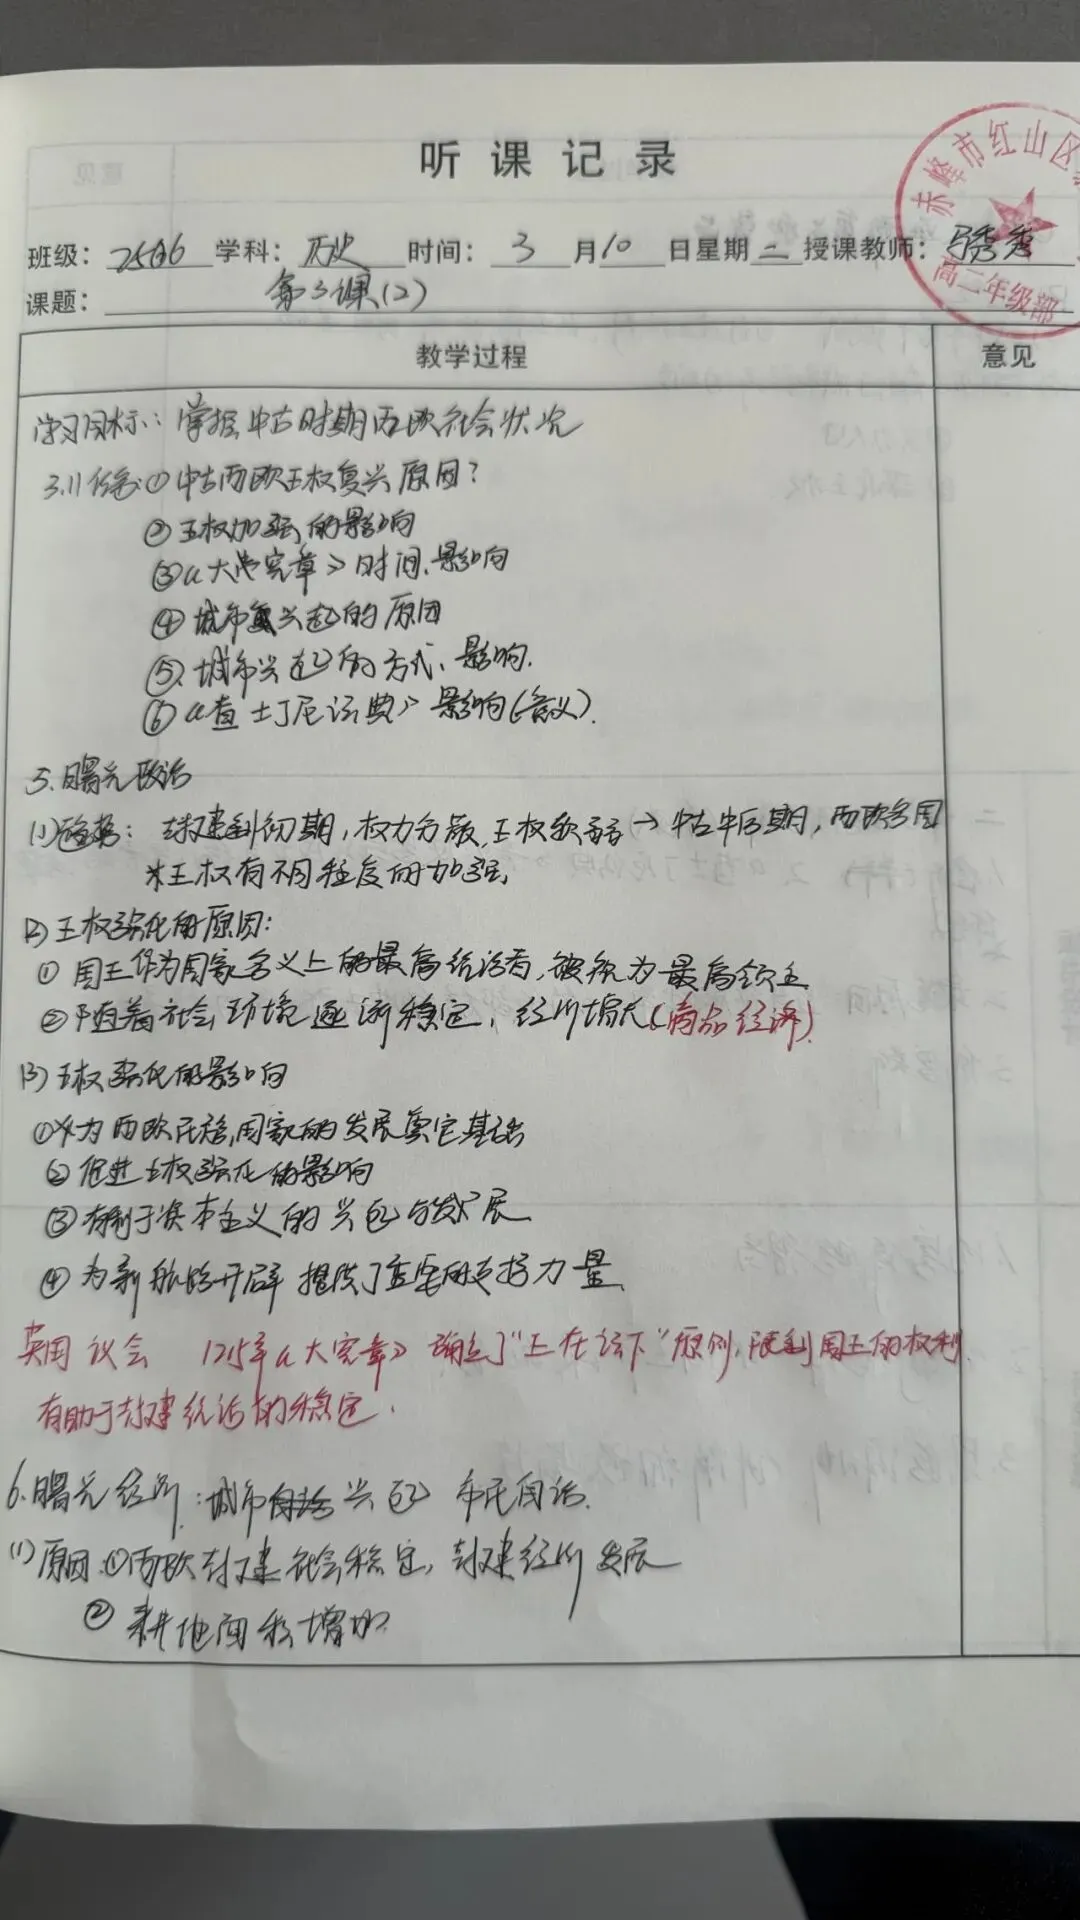 听课记录
赤峰市红山区
高二年级部
班级： 学科：历史 时间：3月10日星期二 授课教师：秀
课题：第3课(2)
教学过程 意见
学习目标：掌握中古时期西欧社会状况
3.1 任务①中古西欧王权复兴原因？
②王权加强的影响
③《大宪章》时间、影响
④城市兴起的原因
⑤城市兴起的方式、影响.
⑥《查士丁尼法典》影响(含义).
5.曙光政治
(1)趋势：封建制初期,权力分散,王权软弱→中古中后期,西欧各国
*王权有不同程度的加强
(2)王权强化的原因：
①国王作为国家名义上的最高统治者,被视为最高领主
②随着社会环境逐渐稳定,经济增长(商品经济).
(3)王权强化的影响
①*为西欧民族国家的发展奠定基础
②促进王权强化的影响
③有利于资本主义的兴起与发展
④为新航路开辟提供了重要的支持力量
英国议会 1215年《大宪章》确立了"王在法下"原则,限制国王的权利.
有助于封建统治的稳定.
6.曙光经济：城市兴起 市民自治.
(1)原因①西欧封建社会稳定,封建经济发展
②耕地面积增加